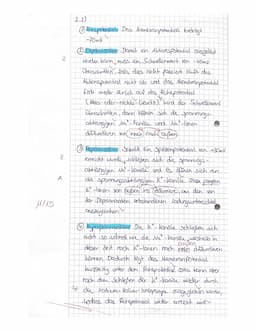 2.2)
① Ruhepotential: Das Membranpotential beträgt
-70mV.
② Depolarisation: Damit ein Aktionspotential ausgelöst
werden kann, muss ein Schwellenwert von -50mV
überschritten, falls dies nicht passiert bleibt das
Aktionspotential nicht ab und das Membranpotential
fällt wieder zurück auf das Ruhepotential
(Alles-oder-nichts-Gesetz). Wird der Schwellenwert
überschritten, dann öffnen sich die spannungs-
abhängigen Na⁺-Kanäle und Na⁺-Ionen
diffundieren von innen nach außen.
③ Repolarisation: Sobald ein Spitzenpotential von +30mV
erreicht wurde, schließen sich die spannungs-
abhängigen Na⁺-Kanäle und es öffnen sich
die spannungsabhängigen K⁺-Kanäle.
K⁺-Ionen von außen ins Zellinnere, um den
der Depolarisation entstandenen Ladungsunterschied
④ Hyperpolarisation: Die K⁺-Kanäle schließen sich
nicht so schnell wie die Na⁺-Kanäle, wodurch in
dieser Zeit noch K⁺-Ionen nach innen diffundieren
können. Dadurch liegt das Membranpotential
kurzzeitig unter dem Ruhepotential, kann aber
nach dem Schließen der K⁺-Kanäle wieder durch
die Natrium-Kalium-Ionenpumpe ausgeglichen werden,
sodass das Ruhepotential wieder erreicht wird.